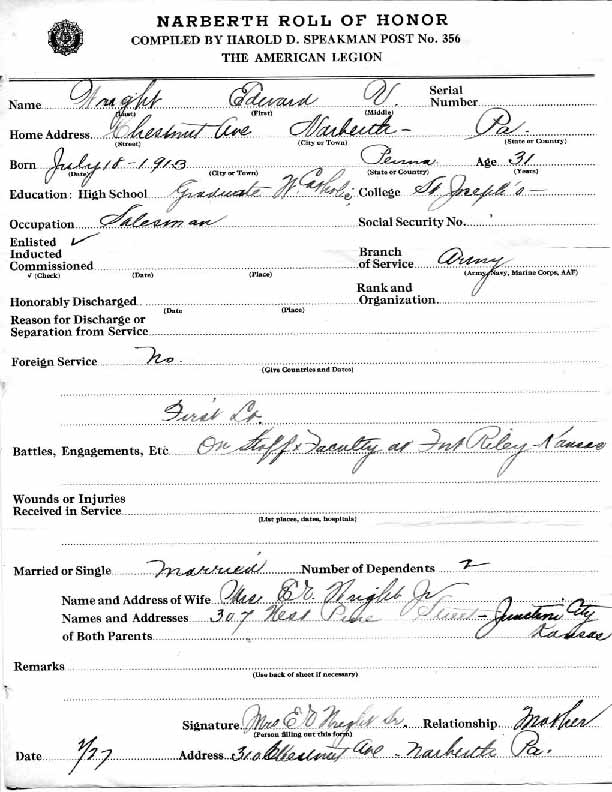 NARBERTH ROLL OF HONOR
COMPILED BY HAROLD D. SPEAKMAN POST No. 356
THE AMERICAN LEGION
Name Wright Edward V. Serial Number
(Last) (First) (Middle)
Home Address Chestnut Ave Narberth - Pa.
(Street) (City or Town) (State or Country)
Born July 18 - 1913 Penna Age 31
(Date) (City or Town) (State or Country) (Years)
Education: High School Graduate W. Catholic College St Joseph's -
Occupation Salesman Social Security No.
Enlisted ✓
Inducted Branch
Commissioned of Service Army
√ (Check) (Date) (Place) (Army, Navy, Marine Corps, AAF)
Rank and
Honorably Discharged Organization.
(Date (Place)
Reason for Discharge or
Separation from Service
Foreign Service No.
(Give Countries and Dates)
First Lt.
Battles, Engagements, Etc On Staff & Faculty at Fort Riley - Kansas
Wounds or Injuries
Received in Service
(List places, dates, hospitals)
Married or Single Married Number of Dependents 2
Name and Address of Wife Mrs. E V. Wright Jr
Names and Addresses 307 West Pine Street - Junction City
of Both Parents Kansas
Remarks
(Use back of sheet if necessary)
Signature Mrs E V Wright Sr. Relationship Mother
(Person filling out this form)
Date Address 310 Chestnut Ave - Narberth Pa.